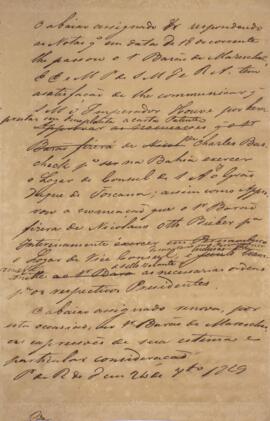 O abaixo assignado respondendo
as Notas q em data de 18 do corrente
lhe passou o Sr Barão de Mareschal
E. E. e M. P. de S. M. I. e R. A. tem
satisfação de lhe communicar q
S. M. o Imperador Houve por bem
em duplicata a carta Patente
Approvar as nomeações q o Sr
Barão fizera de Charles Bas
check pa ser na Bahia exercer
o Lugar de Consul de S. A. o Grão
Duque de Toscana, assim como Appro
vou a nomeação que o Sr Barão
fizera de Nicolaus Otto Bieber pa
interinamente exercer em Pernambuco
o Lugar de Vice Consul, e
ao Sr Barão as necessarias ordens
pa os respectivos Presidentes.
O abaixo assignado renova, por
esta occasião, ao Sr Barão de Mareschal
as expressões de sua estima e
particular consideração.
Po do Rio de Jro em 24 de 7bro 1829